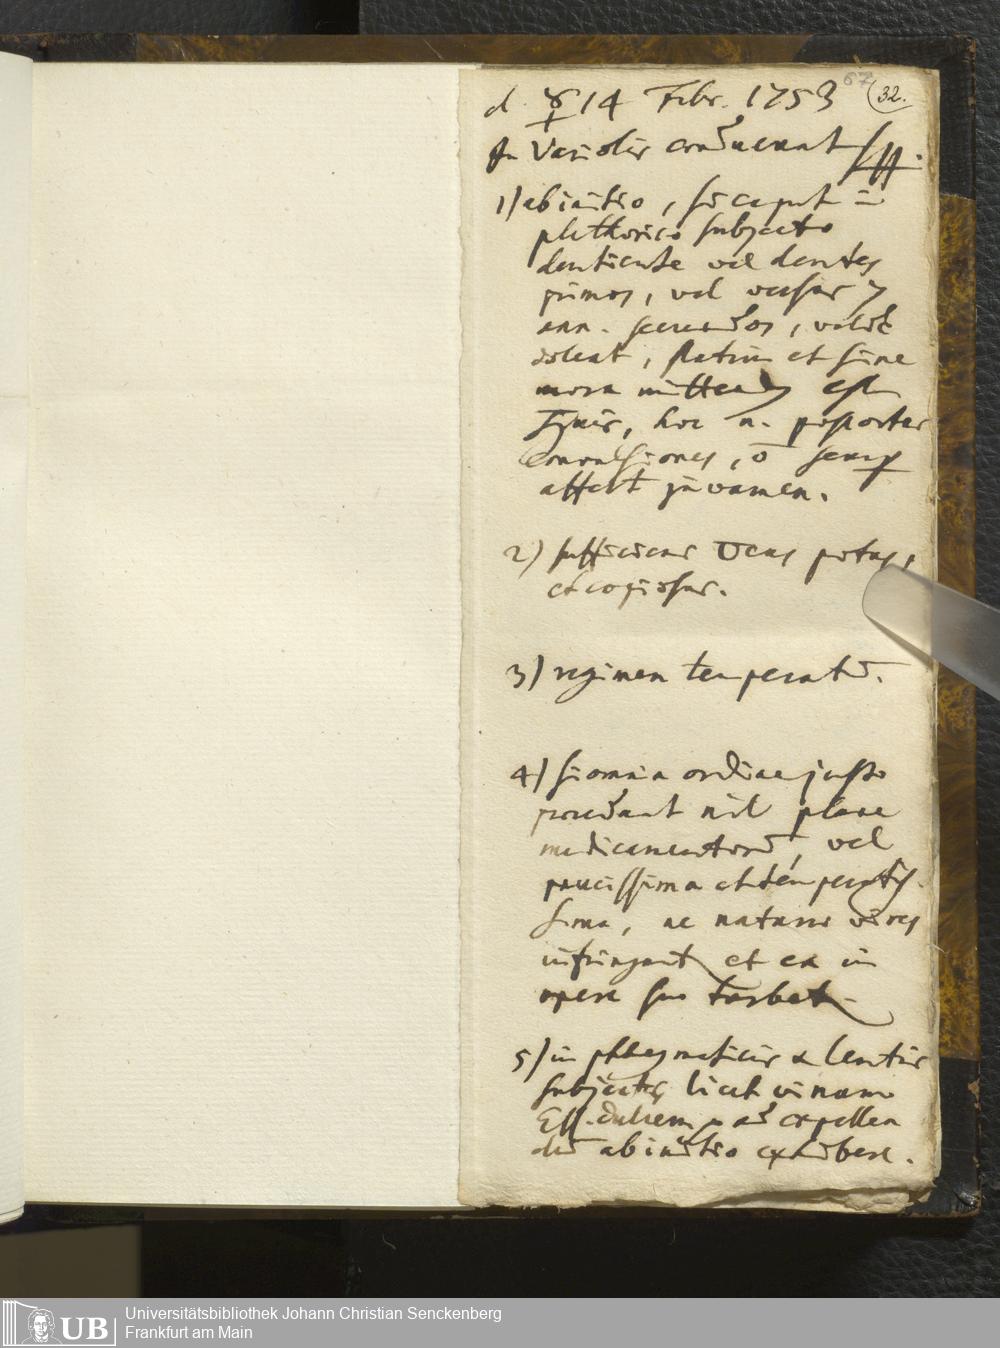 67
(32.
d. ☿ 14 Febr. 1753
In Variolis conducunt
1) ab initio, si caput in
plethorico subjecto
dentiente vel dentes
primos, vel versus 7
ann. secundos, valde
doleat, statim et sine
mora mittendus est
Sguis, hoc n. post
Convulsiones, ō semp
affert juvamen.
2) sufficiens potus,
et copiosus.
3) regimen temperatū.
4) si omnia ordine justo
procedant nil plane
medicamentorū, vel
paucissima et temperatis-
sima, ne naturae vires
infringant et ea in
opere suo turbet.
5) in phlegmaticis & lentis
subjectis licet vinum
Ess. dulcem ad expellen
dū ab initio exhibere.
UB
Universitätsbibliothek Johann Christian Senckenberg
Frankfurt am Main